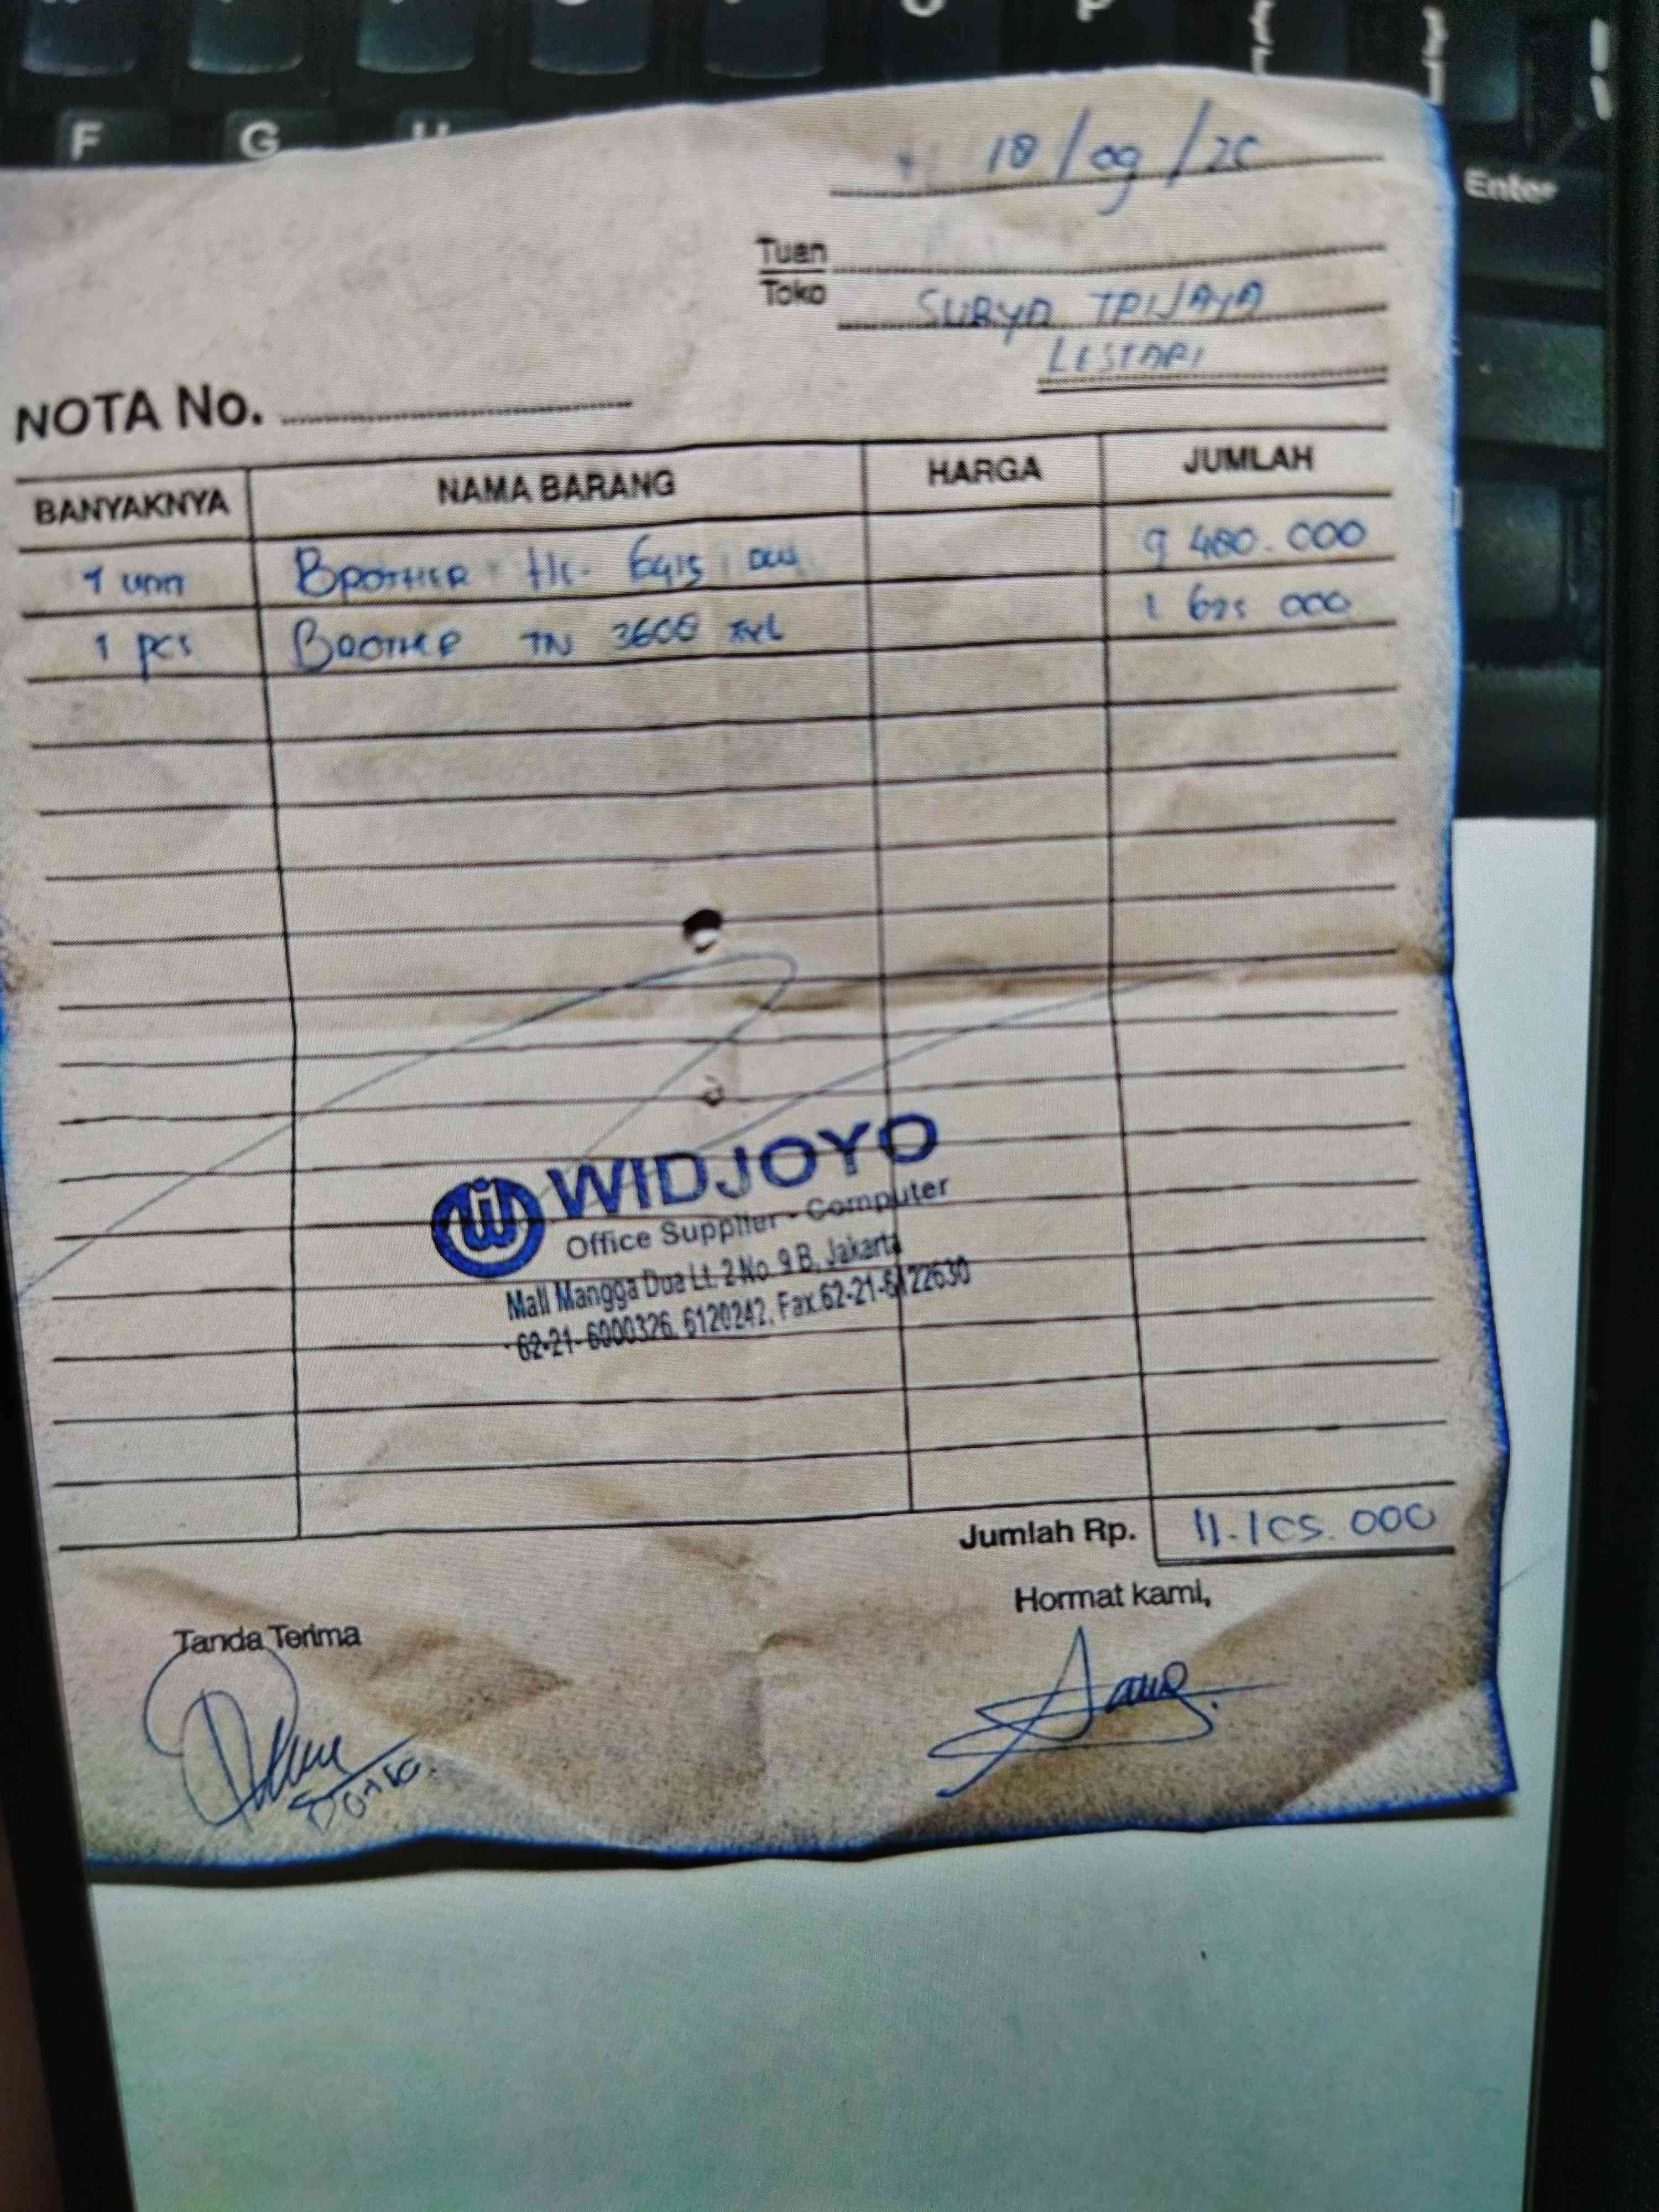 F G
Enter
18/09/25
Tuan
Toko
SURYA TRIJAYA
LESTARI
NOTA No.
BANYAKNYA NAMA BARANG HARGA JUMLAH
1 unit BROTHER HL- 6415 DW 9 480.000
1 pcs BROTHER TN 3608 XXL 1 625 000
WIDJOYO
Office Supplier - Computer
Mall Mangga Dua Lt. 2 No. 9 B, Jakarta
62-21-6000326, 6120242, Fax.62-21-6122630
Jumlah Rp. 11.105.000
Hormat kami,
Tanda Terima